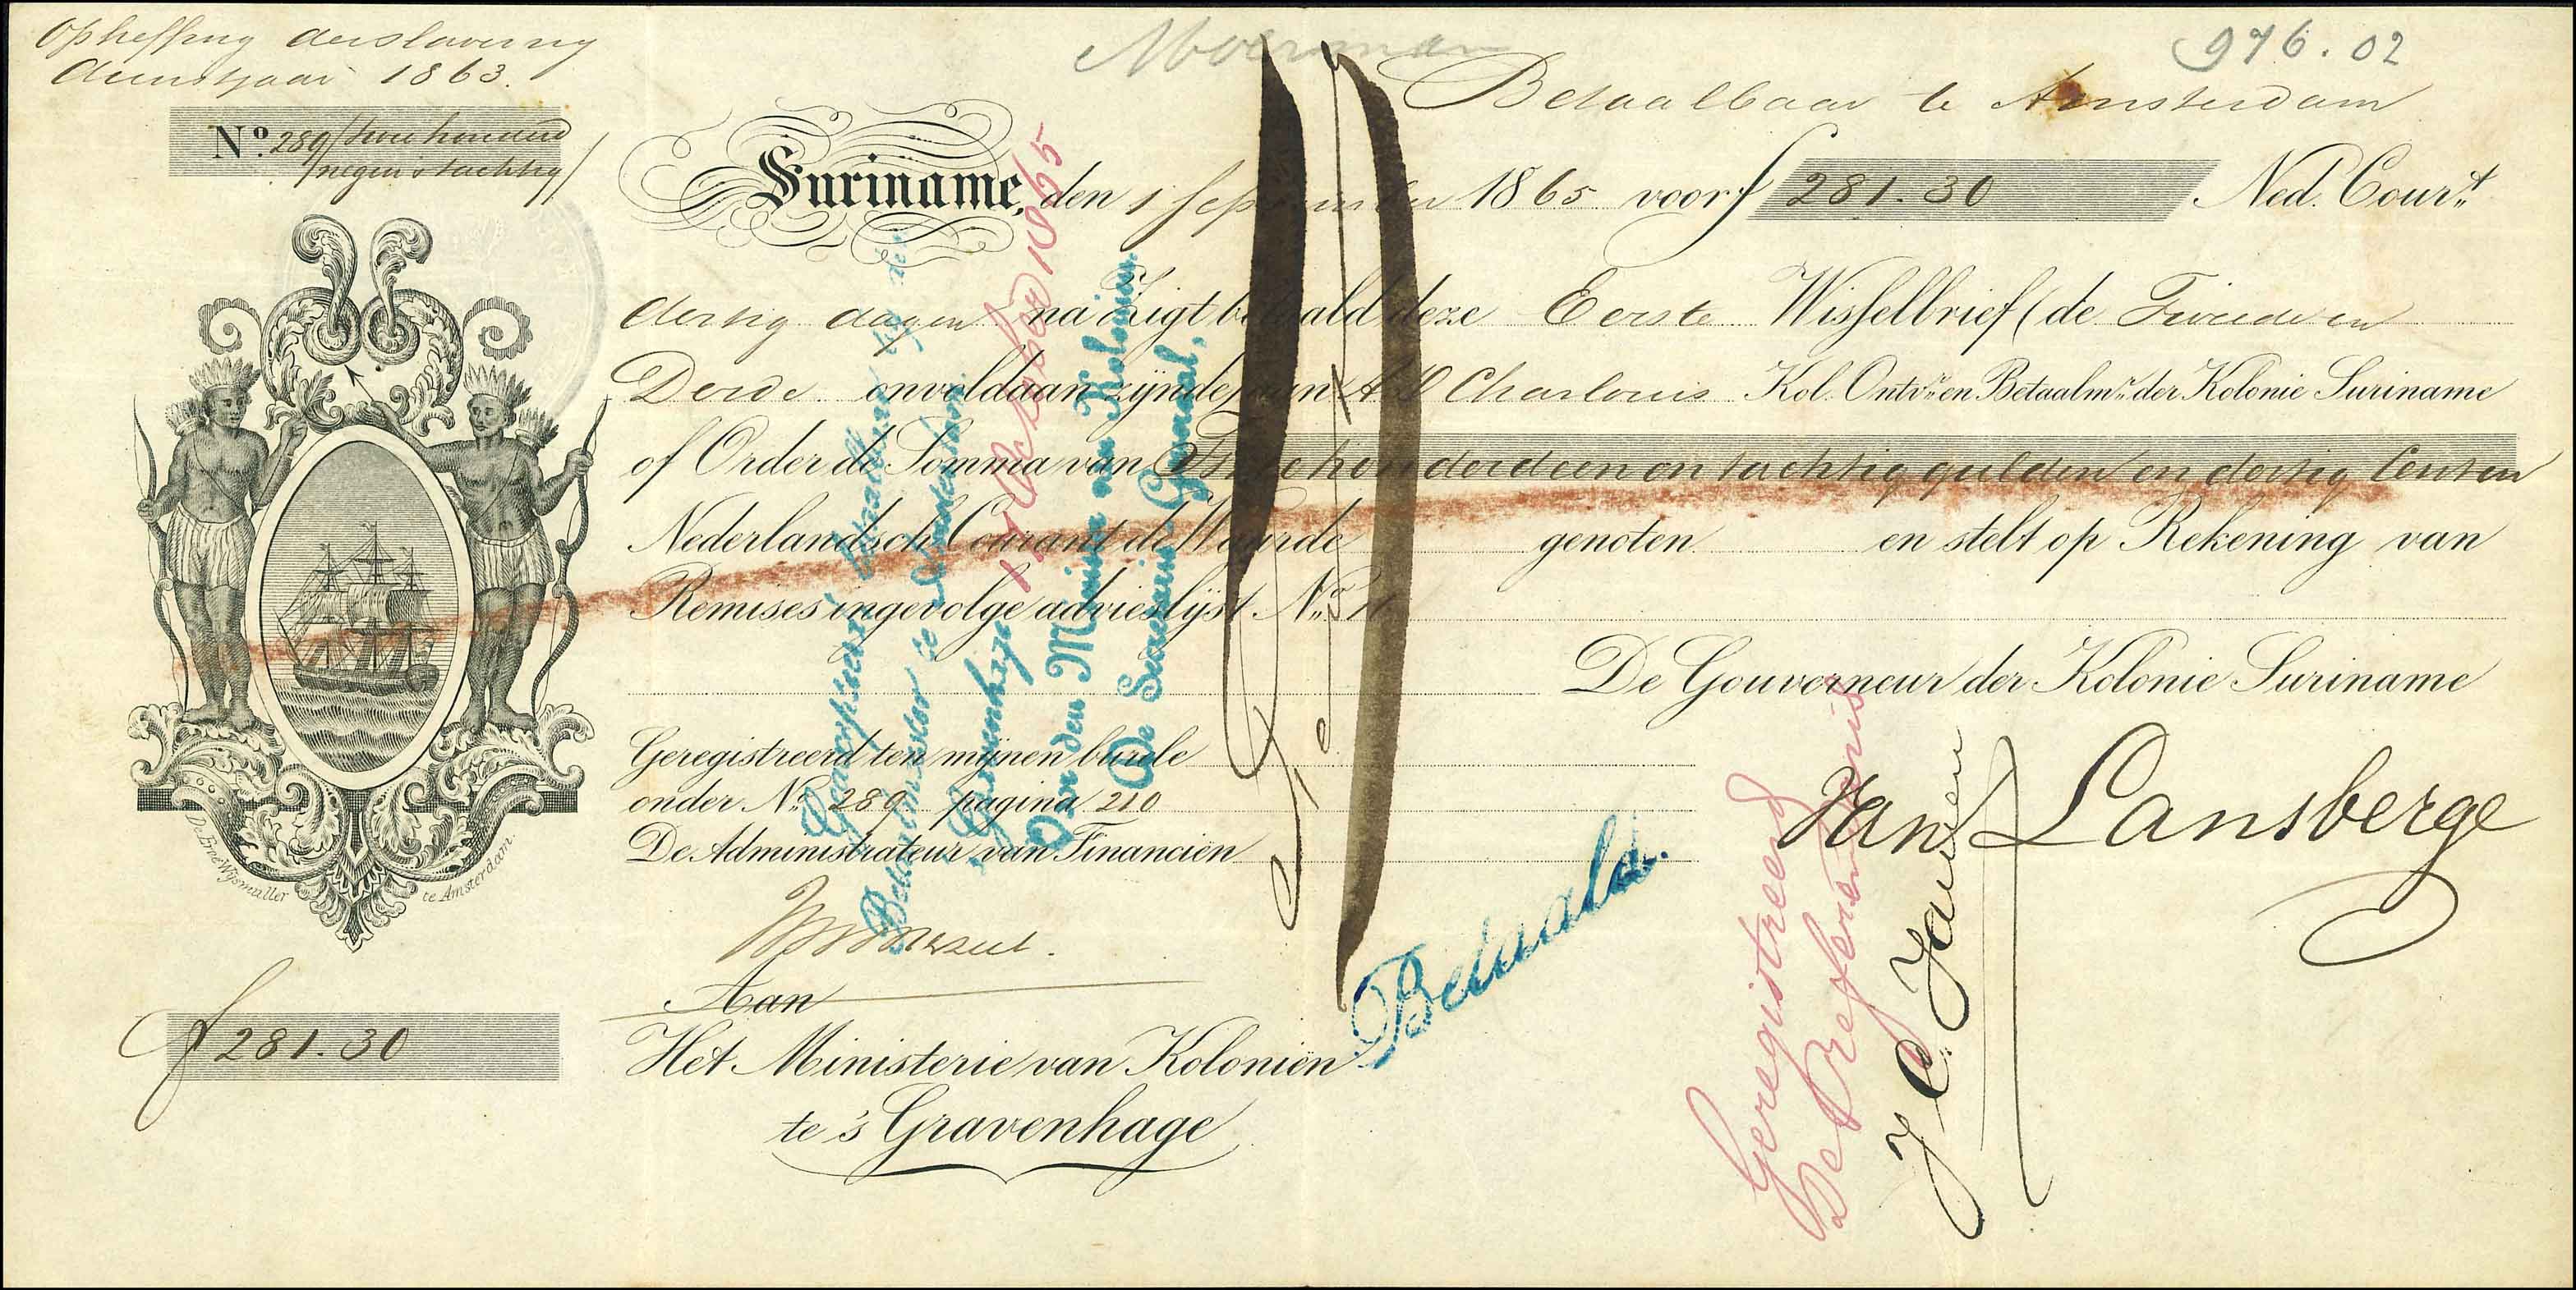 Opheffing der slaverny
dienstjaar 1863.
Moerman
976.02
Betaalbaar te Amsterdam
No. 289 / twee honderd
negen & tachtig /
Suriname, den 1 September 1865 voor f 281.30 Ned. Court.
dertig dagen na Zigt betaald deze Eerste Wisselbrief (de Tweede en
Derde onvoldaan zijnde) aan Charlouis Kol. Ontvr. en Betaalmr. der Kolonie Suriname
of Order de Somma van Twee honderd een en tachtig gulden en dertig Centen
Nederlandsch Courant de Waarde genoten en stelt op Rekening van
Remises ingevolge advieslijst No.
De Gouverneur der Kolonie Suriname
Van Lansberge
Geregistreerd ten mijnen burele
onder No. 289 pagina 210
De Administrateur van Financien
Aan
Het Ministerie van Koloniën
te 's Gravenhage
f 281.30
De Erve Wijsmuller te Amsterdam.
Geaccepteerd betaalbaar bij den
Betaalmeester te Amsterdam
's Gravenhage October 1865
Voor den Minister van Koloniën
De Secretaris Generaal,
Betaald.
Geregistreerd
De Referendaris
J C Jansen